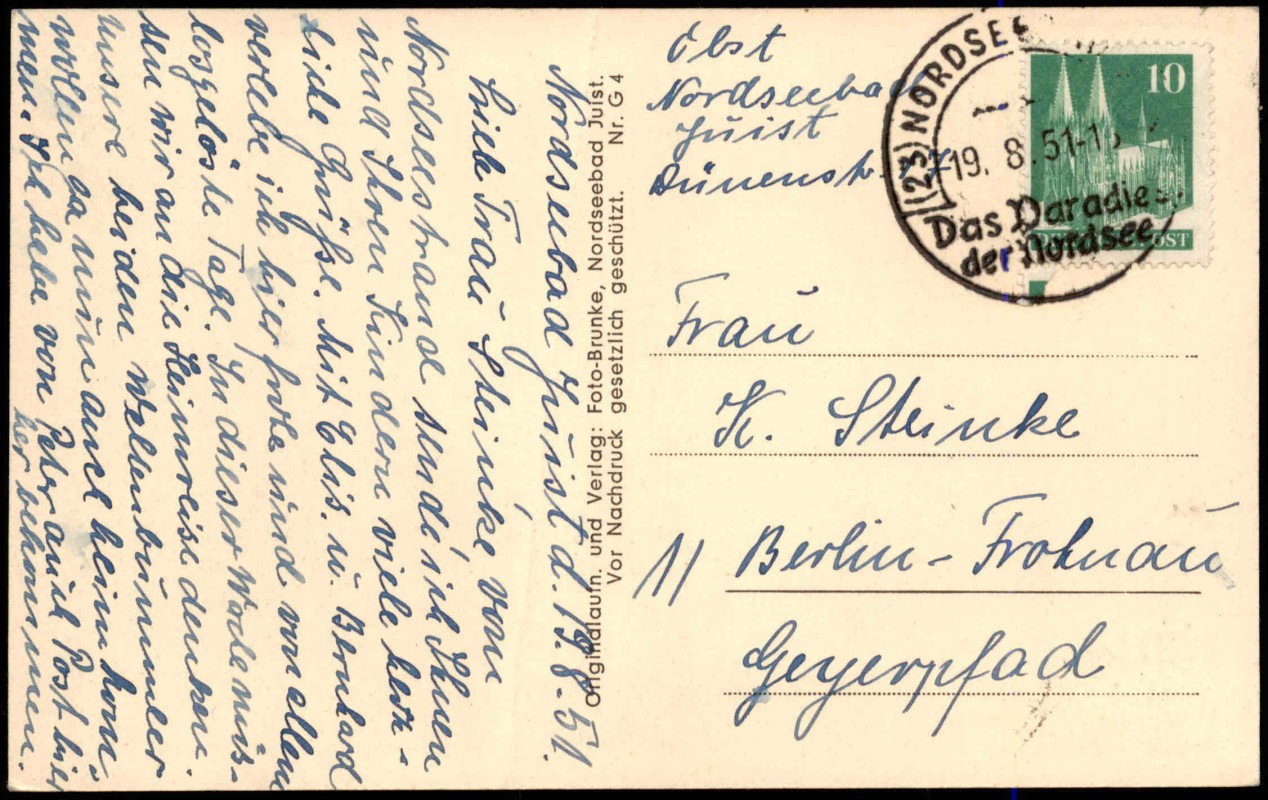 Nordseebad Juist d. 19.8.51.
Liebe Frau Steinke, vom
Nordseestrand sende ich Ihnen
und Ihren Kindern viele herz-
liche Grüße. Mit Elis. u. Bernhard
verlebe ich hier frohe und von allem
losgelöste Tage. In dieser Woche müs-
sen wir an die Heimreise denken.
Unsere beiden Wellenbummler
wollen ja nun auch heim kom-
men. Ich habe von Peter auch Post hier
her bekommen.
Originalaufn. und Verlag: Foto-Brunke, Nordseebad Juist.
Vor Nachdruck gesetzlich geschützt. Nr. G 4
Obst
Nordseebad
Juist
Dünenstr.
(23) NORDSEE
19. 8. 51-1
Das Paradies
der Nordsee
10
POST
Frau
K. Steinke
1) Berlin-Frohnau
Geyerpfad